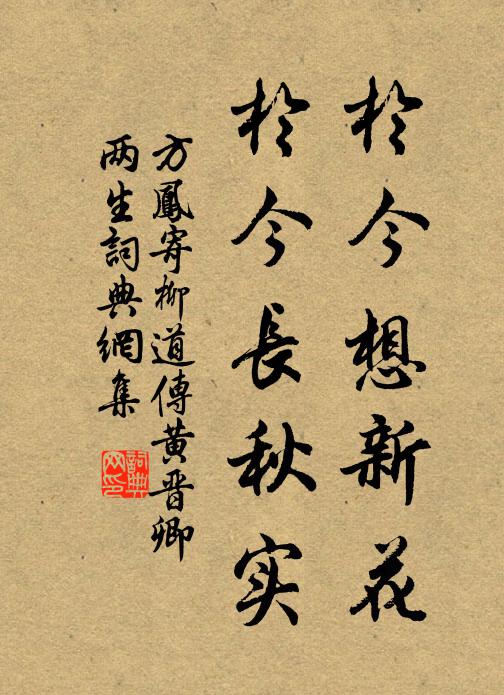 於今想新花
於今長秋实
方鳳寄柳道傳黄晋卿
两生詞典網集
詞典网印